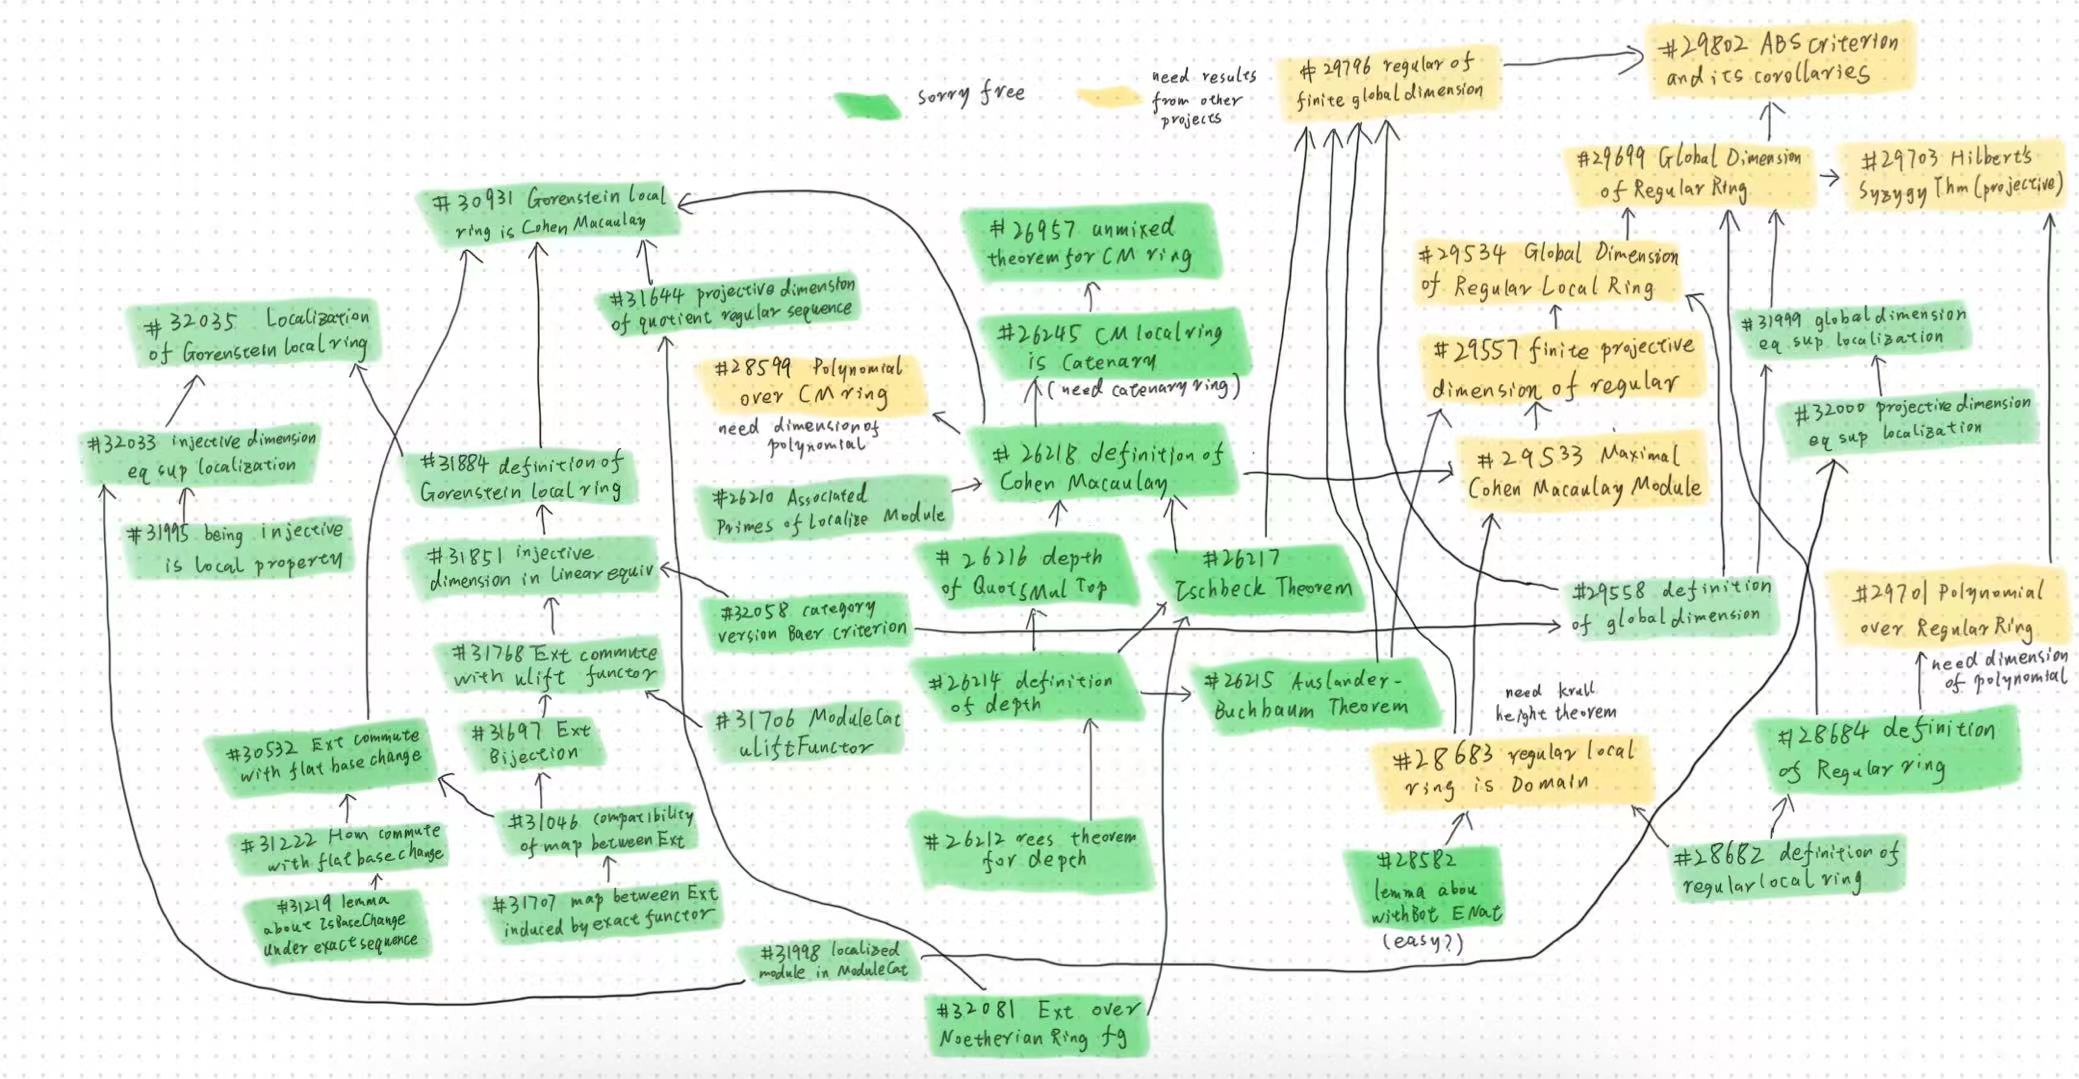 sorry free
need results
from other
projects
#29796 regular of
finite global dimension
#29802 ABS criterion
and its corollaries
#29699 Global Dimension
of Regular Ring
#29703 Hilbert's
Syzygy Thm (projective)
#30931 Gorenstein local
ring is Cohen Macaulay
#26957 unmixed
theorem for CM ring
#29534 Global Dimension
of Regular Local Ring
#31644 projective dimension
of quotient regular sequence
#32035 Localization
of Gorenstein local ring
#26245 CM local ring
is Catenary
(need catenary ring)
#31999 global dimension
eq sup localization
#29557 finite projective
dimension of regular
#28599 Polynomial
over CM ring
need dimension of
polynomial
#32000 projective dimension
eq sup localization
#32033 injective dimension
eq sup localization
#31884 definition of
Gorenstein local ring
#26218 definition of
Cohen Macaulay
#29533 Maximal
Cohen Macaulay Module
#26210 Associated
Primes of Localize Module
#31995 being injective
is local property
#31851 injective
dimension in linear equiv
#26216 depth
of QuotSMul Top
#26217
Ischbeck Theorem
#29558 definition
of global dimension
#29701 Polynomial
over Regular Ring
need dimension
of polynomial
#32058 category
version Baer criterion
#31768 Ext commute
with ulift functor
#26214 definition
of depth
#26215 Auslander-
Buchbaum Theorem
need krull
height theorem
#31706 ModuleCat
uliftFunctor
#31697 Ext
Bijection
#30532 Ext commute
with flat base change
#28683 regular local
ring is Domain
#28684 definition
of Regular ring
#31222 Hom commute
with flat base change
#31046 compatibility
of map between Ext
#26212 rees theorem
for depth
#28582
lemma abou
withBot ENat
(easy?)
#28682 definition of
regular local ring
#31219 lemma
about IsBaseChange
under exact sequence
#31707 map between Ext
induced by exact functor
#31998 localized
module in ModuleCat
#32081 Ext over
Noetherian Ring fg